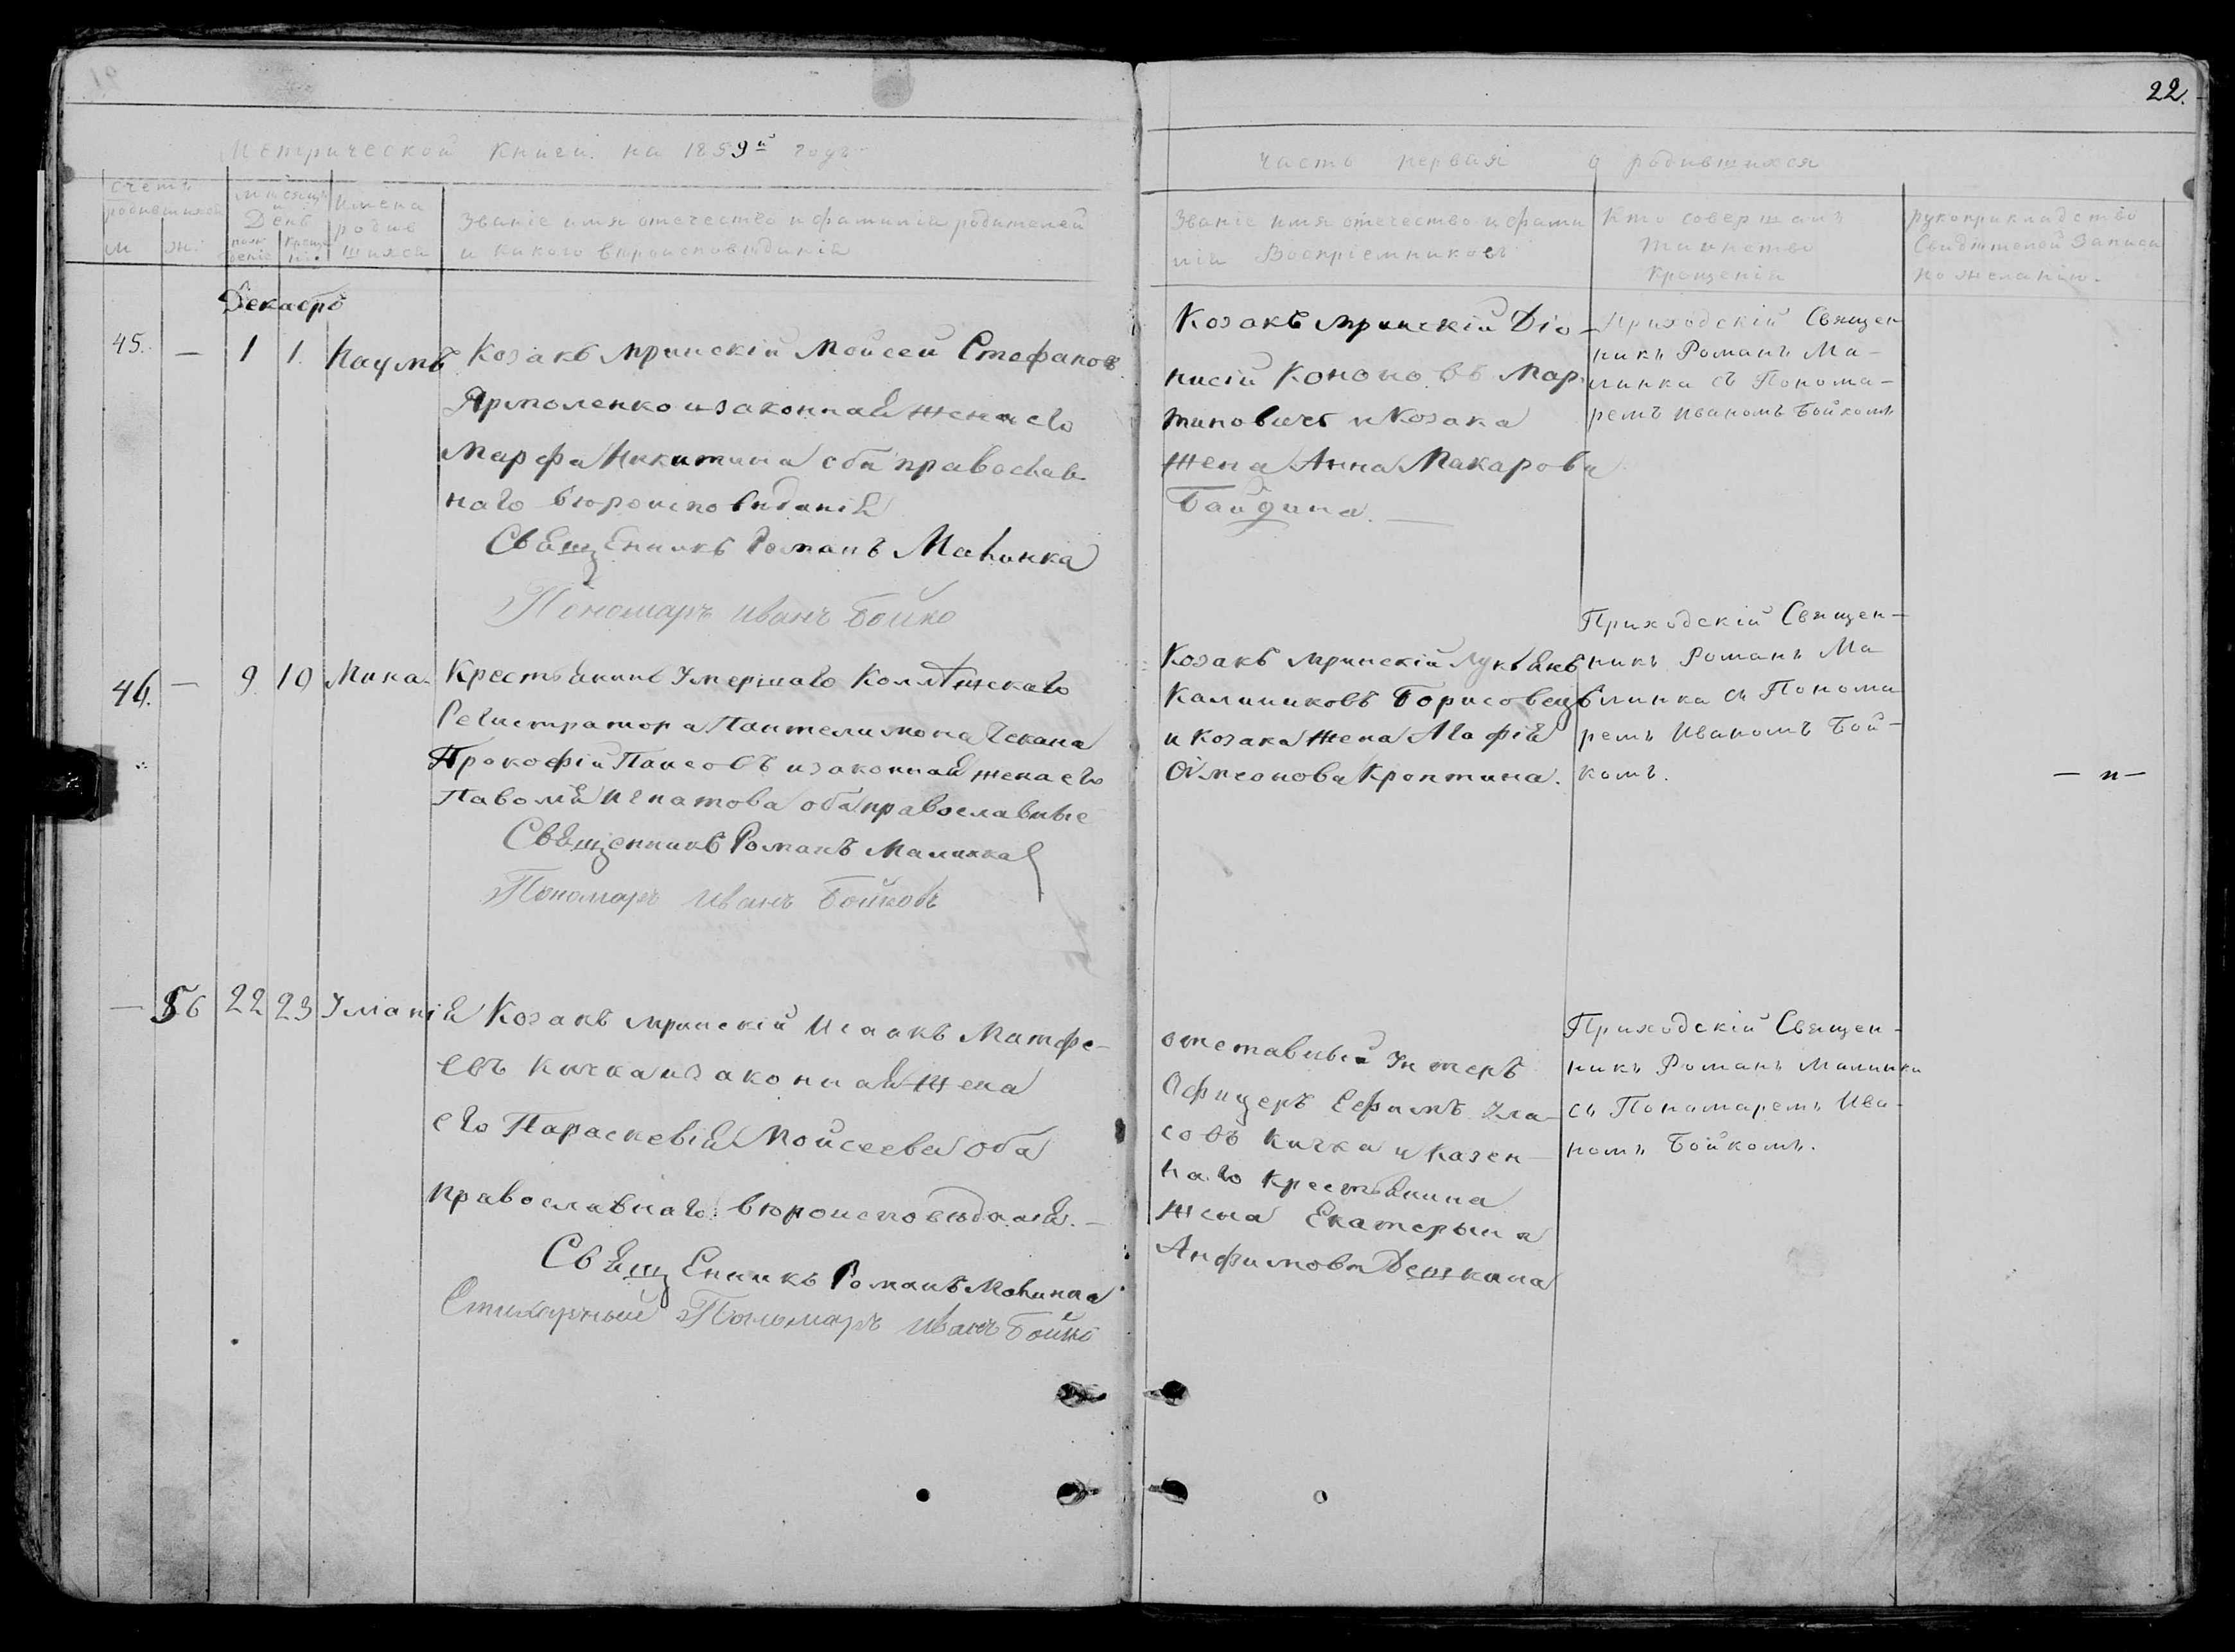 22.
Метрической Книги на 1859й годъ
часть первая о родившихся
счетъ родившихся
м ж.
Мѣсяцъ и День
рождение крещения
Имена родившихся
Званіе имя отечество и фамилія родителей
и какого вѣроисповѣданія
Званіе имя отечество и фами
лія Воспріемниковъ
Кто совершалъ
таинство
Крещенія
рукоприкладство
Свидѣтелей записи
по желанію.
Декабрь
45. — 1 1. Наумъ
Козакъ мринскій Мойсей Стефановъ
Ярмоленко и законная жена его
Марфа Никитина оба православ
наго вѣроисповѣданія
Священикъ Романъ Малинка
Пономарь Иванъ Бойко
Козакъ мринскій Діо-
нисій Кононовъ Мар
тиновичъ и Козака
жена Анна Макарова
Байдина. —
Приходскій Священ
никъ Романъ Ма-
линка съ Понома-
ремъ Иваномъ Бойкомъ
46. — 9. 10 Мина.
Крестьянинъ Умершаго Коллѣжскаго
Регистратора Пантелимона
Прокофій Паисовъ и законная жена его
Игнатова оба православные
Священникъ Романъ Малинка
Пономарь Иванъ Бойковъ
Козакъ мринскій Лукьянъ
Калиниковъ Борисовецъ
и козака жена Агафія
Симеонова Кроптина.
Приходскій Священ-
никъ Романъ Ма
линка съ Понома
ремъ Иваномъ Бой-
комъ.
— „ —
— 56 22 23 Уліанія
Козакъ мринскій Исаакъ Матфе-
евъ Кичка и законная жена
его Параскевія Мойсеева оба
православнаго вѣроисповѣданія. —
Священикъ Романъ Малинка
Стихарный Пономарь Иванъ Бойко
отставный Унтеръ
Офицеръ Ефимъ
Кичка и казен
наго крестьянина
жена Екатерына
Анфимова
Приходскій Священ-
никъ Романъ Малинка
съ Пономаремъ Ива-
номъ Бойкомъ.